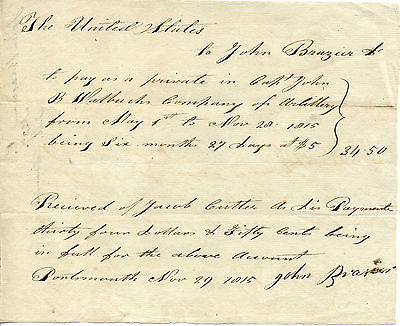 The United States
to John Brazier Dr
to pay as a private in Capt John
B Walbacks Company of Artillery
from May 1st to Nov 28 - 1815
being Six months 27 Days at $5 } 34.50
Recieved of Jacob Cutler As Dis Paymaste
thirty four Dollars & Fifty Cents being
in full for the above account
Portsmouth Nov 29 1815 John Brazier